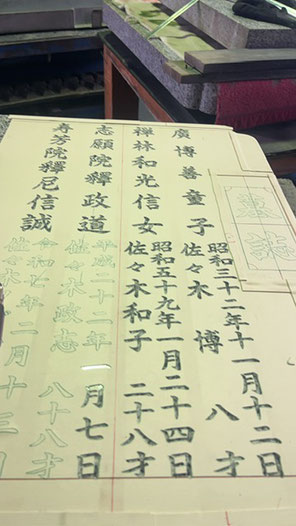 墓誌
廣博善童子
昭和三十二年十一月十二日
佐々木 博 八才
禅林和光信女
昭和五十九年一月二十四日
佐々木和子 二十八才
志願院釋政道
平成二十二年 月七日
佐々木政志 八十才
寿芳院釋尼信誠
令和七年二月十三日
佐々木 八十八才